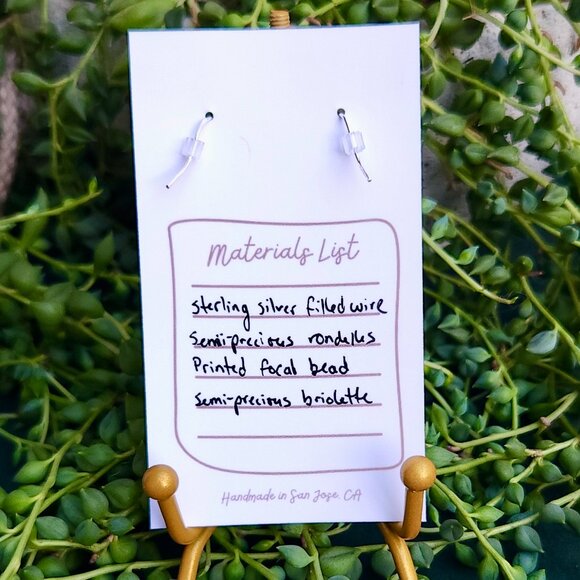 Materials List
Sterling silver filled wire
Semi-precious rondelles
Printed focal bead
Semi-precious briolette
Handmade in San Jose, CA